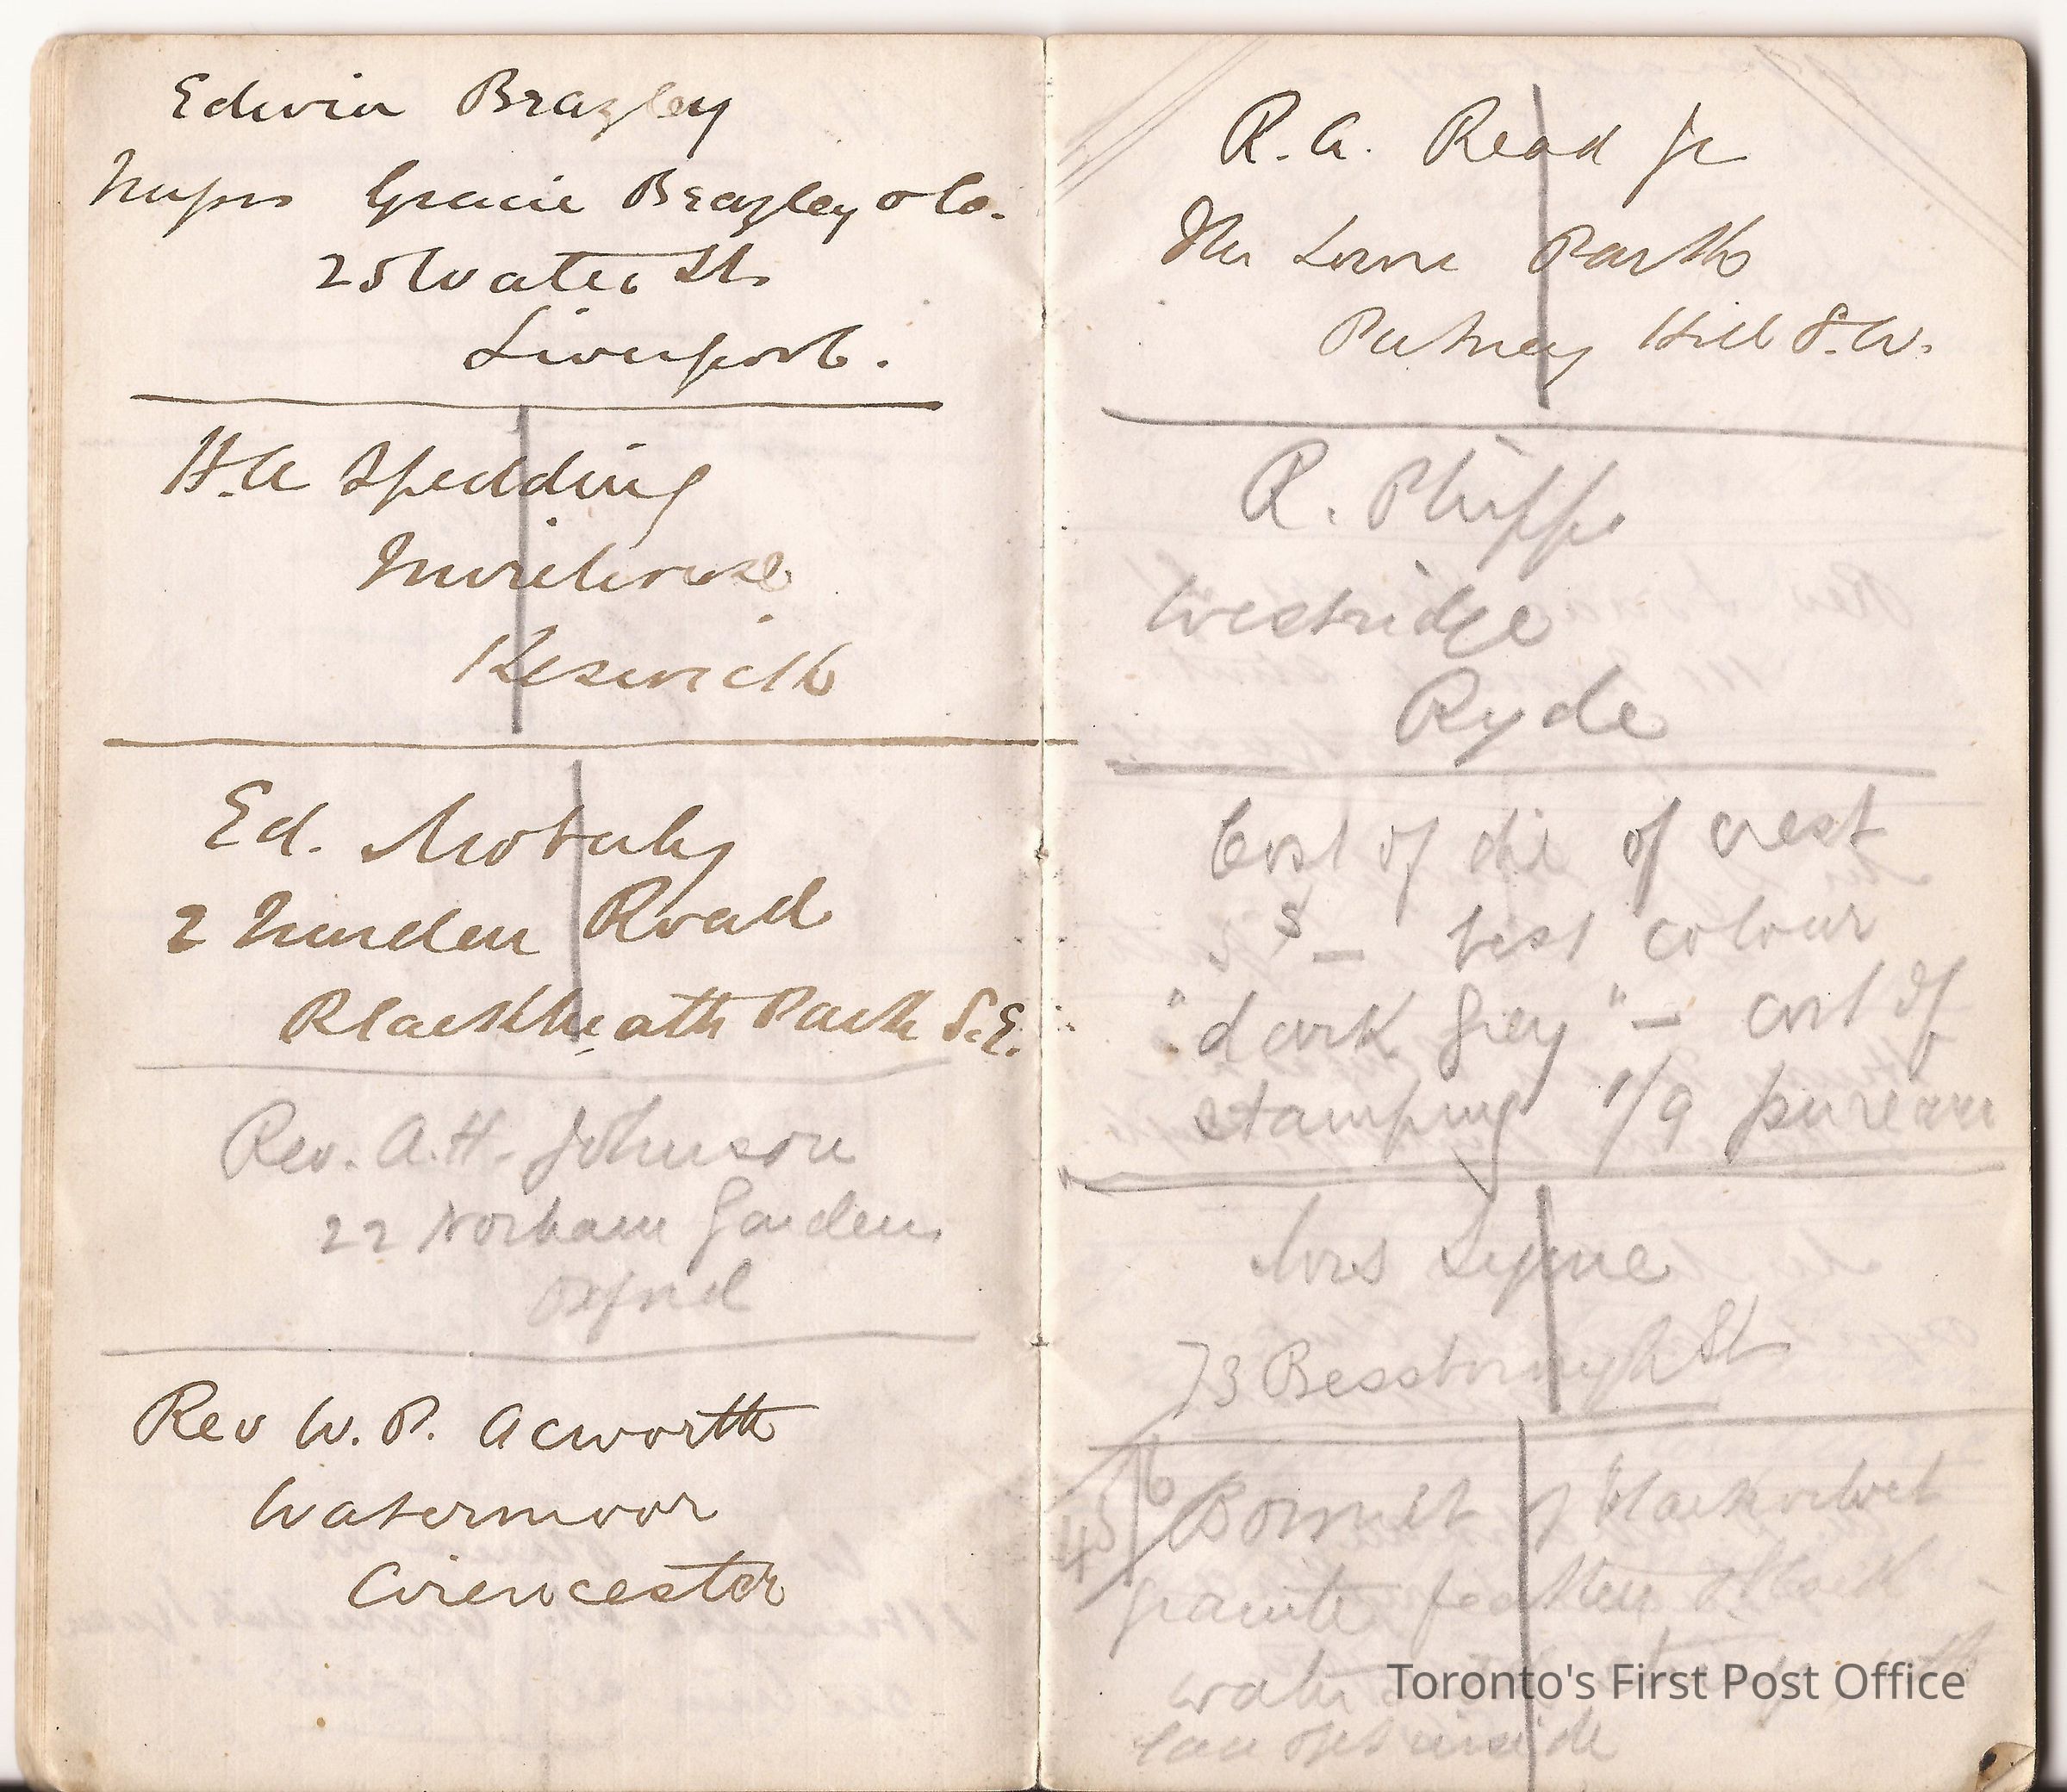 Edwin Brazley
Messrs Gracie Beazley & Co.
25 Water St.
Liverpool.
H.A Spedding
Mirehouse
Keswick
Ed.
2 Road
Blackheath Park S.E.
Rev. A.H. Johnson
22 Norham Gardens
Oxford
Rev W. P. Acworth
Watermoor
Cirencester
R. A. Read Jr
The Lorne Park
Putney Hill S.W.
R. Phipps
Westridge
Ryde
Cost of die of crest
best colour
"dark grey" — cost of
stamping 1/9 per ream
Mrs Lyne
73 Bessborough St
45/6 Bonnet of black velvet
feather & black
inside
Toronto's First Post Office